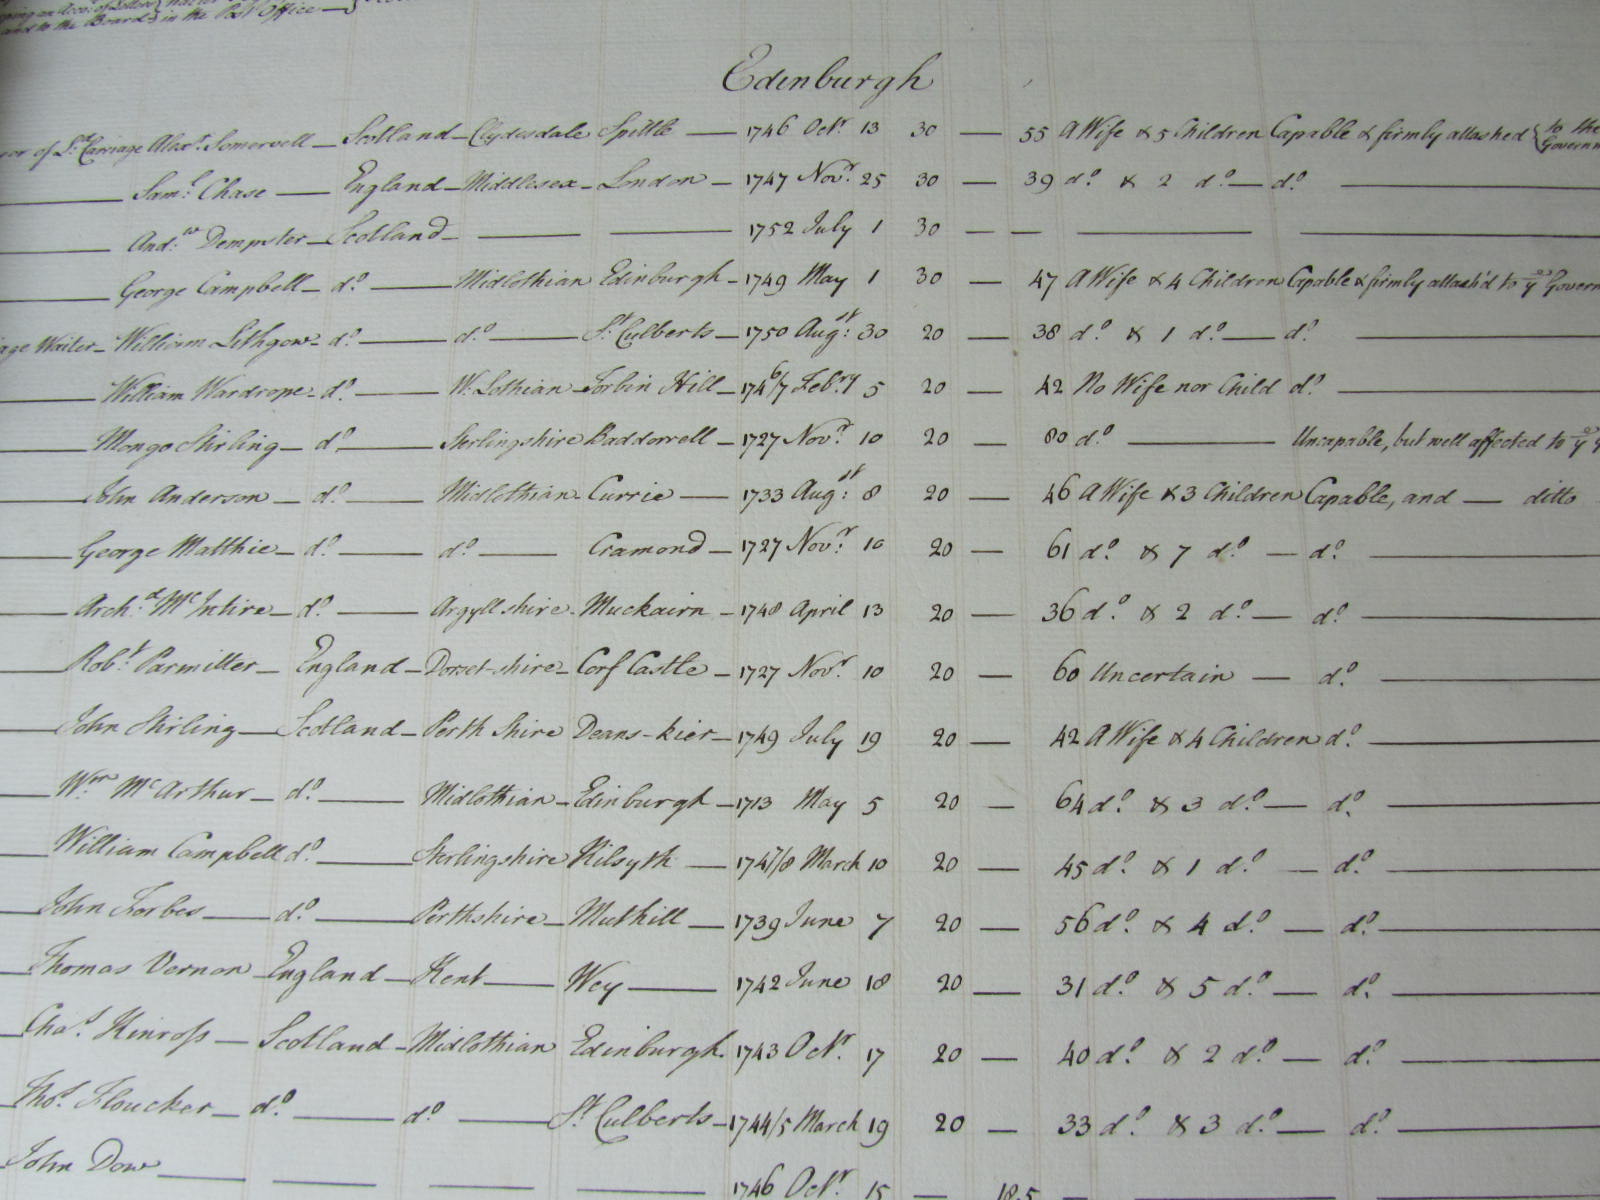 and to the Board in the Post Office —
Edinburgh
or of Ld. Carriage Alexr. Somervell — Scotland — Clydesdale Spittle — 1746 Octr. 13 30 — 55 A Wife & 5 Children Capable & firmly attached to the Governm
Saml. Chase — England — Middlesex — London — 1747 Novr. 25 30 — 39 do. & 2 do. — do. —
Andw. Dempster — Scotland — — — 1752 July 1 30 — — — —
George Campbell — do. — Midlothian Edinburgh — 1749 May 1 30 — 47 A Wife & 4 Children Capable & firmly attach'd to ye Govern
age Waiter — William Lithgow — do. — do. — St. Culberts — 1750 Augst: 30 20 — 38 do. & 1 do. — do. —
William Wardrope — do. — W. Lothian Torbin Hill — 1746/7 Febry. 5 20 — 42 No Wife nor Child do. —
Mongo Stirling — do. — Sterlingshire Baddorrell — 1727 Novr. 10 20 — 80 do. — Uncapable, but well affected to ye
John Anderson — do. — Midlothian Currie — 1733 Augst: 8 20 — 46 A Wife & 3 Children Capable, and — ditto
George Matthie — do. — do. — Cramond — 1727 Novr. 10 20 — 61 do. & 7 do. — do. —
Archd. McIntire — do. — Argyllshire Muckairn — 1748 April 13 20 — 36 do. & 2 do. — do. —
Robt. Parmitter — England — Dorset-shire — Corf Castle — 1727 Novr. 10 20 — 60 Uncertain — do. —
John Stirling — Scotland — Perth Shire Deans-kier — 1749 July 19 20 — 42 A Wife & 4 Children do. —
Wm. McArthur — do. — Midlothian — Edinburgh — 1713 May 5 20 — 64 do. & 3 do. — do. —
William Campbell do. — Sterlingshire Kilsyth — 1747/8 March 10 20 — 45 do. & 1 do. — do. —
John Forbes — do. — Perthshire — Muthill — 1739 June 7 20 — 56 do. & 4 do. — do. —
Thomas Vernon — England — Kent — Wey — 1742 June 18 20 — 31 do. & 5 do. — do. —
Chas. Kinross — Scotland — Midlothian Edinburgh. 1743 Octr. 17 20 — 40 do. & 2 do. — do. —
Thos. Floucker — do. — do. — St. Culberts — 1744/5 March 19 20 — 33 do. & 3 do. — do. —
John Dow — — — — 1746 Octr. 15 — 18.5 —